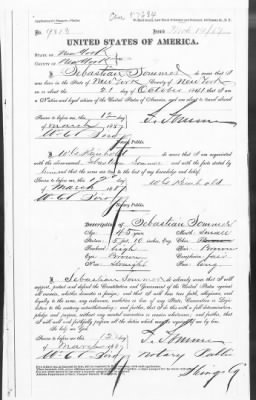 UNITED STATES OF AMERICA.
STATE OF New York
COUNTY OF New York
I, Sebastian Sommer do swear that I
was born in the State of New York County of New York
on or about the 21 day of October 1841 that I am
a Native and loyal citizen of the United States of America, and am about to travel abroad
Sworn to before me, this 12
day of March 1887
Notary Public.
I, W G Reinhold do swear that I am acquainted
with the above-named Sebastian Sommer and with the facts stated by
him, and that the same are true to the best of my knowledge and belief.
Sworn to before me, this 12
day of March 1887
W G Reinhold
Notary Public.
Description of Sebastian Sommer
Age: 45 yrs
Mouth: small
Stature: 5 ft. 10 inches, Eng.
Forehead: high
Hair: Brown
Eyes: Brown
Complexion: fair
Nose: straight
Face: long
I, Sebastian Sommer do solemnly swear that I will
support, protect and defend the Constitution and Government of the United States against
all enemies, whether domestic or foreign; and that I will bear true faith, allegiance, and
loyalty to the same, any ordinance, resolution or law of any State, Convention or Legislature
to the contrary notwithstanding; and further, that I do this with a full determination,
pledge and purpose, without any mental reservation or evasion whatsoever; and further,
that I will well and faithfully perform all the duties which may be required of me by law.
So help me God.
Sworn to before me, this 12 day
of March 1887
Notary Public
Kings Co